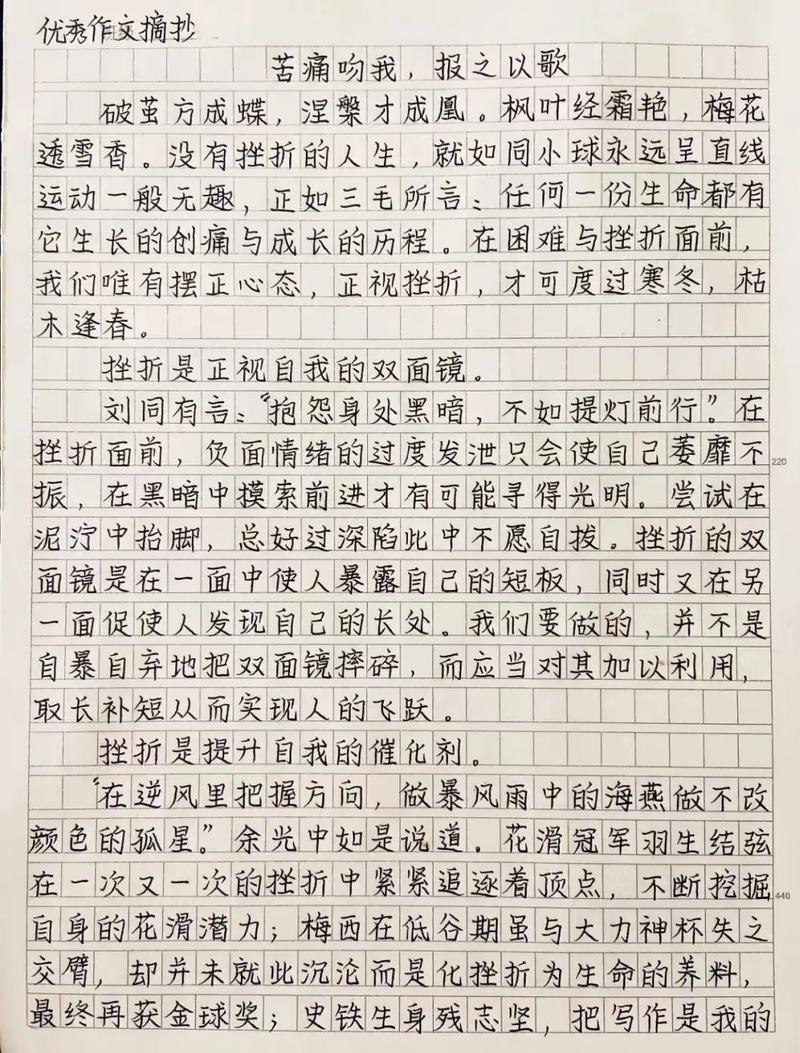 优秀作文摘抄
苦痛吻我，报之以歌
破茧方成蝶，涅槃才成凰。枫叶经霜艳，梅花
透雪香。没有挫折的人生，就如同小球永远呈直线
运动一般无趣，正如三毛所言：任何一份生命都有
它生长的创痛与成长的历程。在困难与挫折面前，
我们唯有摆正心态，正视挫折，才可度过寒冬，枯
木逢春。
挫折是正视自我的双面镜。
刘同有言：“抱怨身处黑暗，不如提灯前行”。在
挫折面前，负面情绪的过度发泄只会使自己萎靡不
220
振，在黑暗中摸索前进才有可能寻得光明。尝试在
泥泞中抬脚，总好过深陷此中不愿自拔。挫折的双
面镜是在一面中使人暴露自己的短板，同时又在另
一面促使人发现自己的长处。我们要做的，并不是
自暴自弃地把双面镜摔碎，而应当对其加以利用，
取长补短从而实现人的飞跃。
挫折是提升自我的催化剂。
“在逆风里把握方向，做暴风雨中的海燕做不改
颜色的孤星。”余光中如是说道。花滑冠军羽生结弦
在一次又一次的挫折中紧紧追逐着顶点，不断挖掘
440
自身的花滑潜力；梅西在低谷期虽与大力神杯失之
交臂，却并未就此沉沦而是化挫折为生命的养料，
最终再获金球奖；史铁生身残志坚，把写作是我的